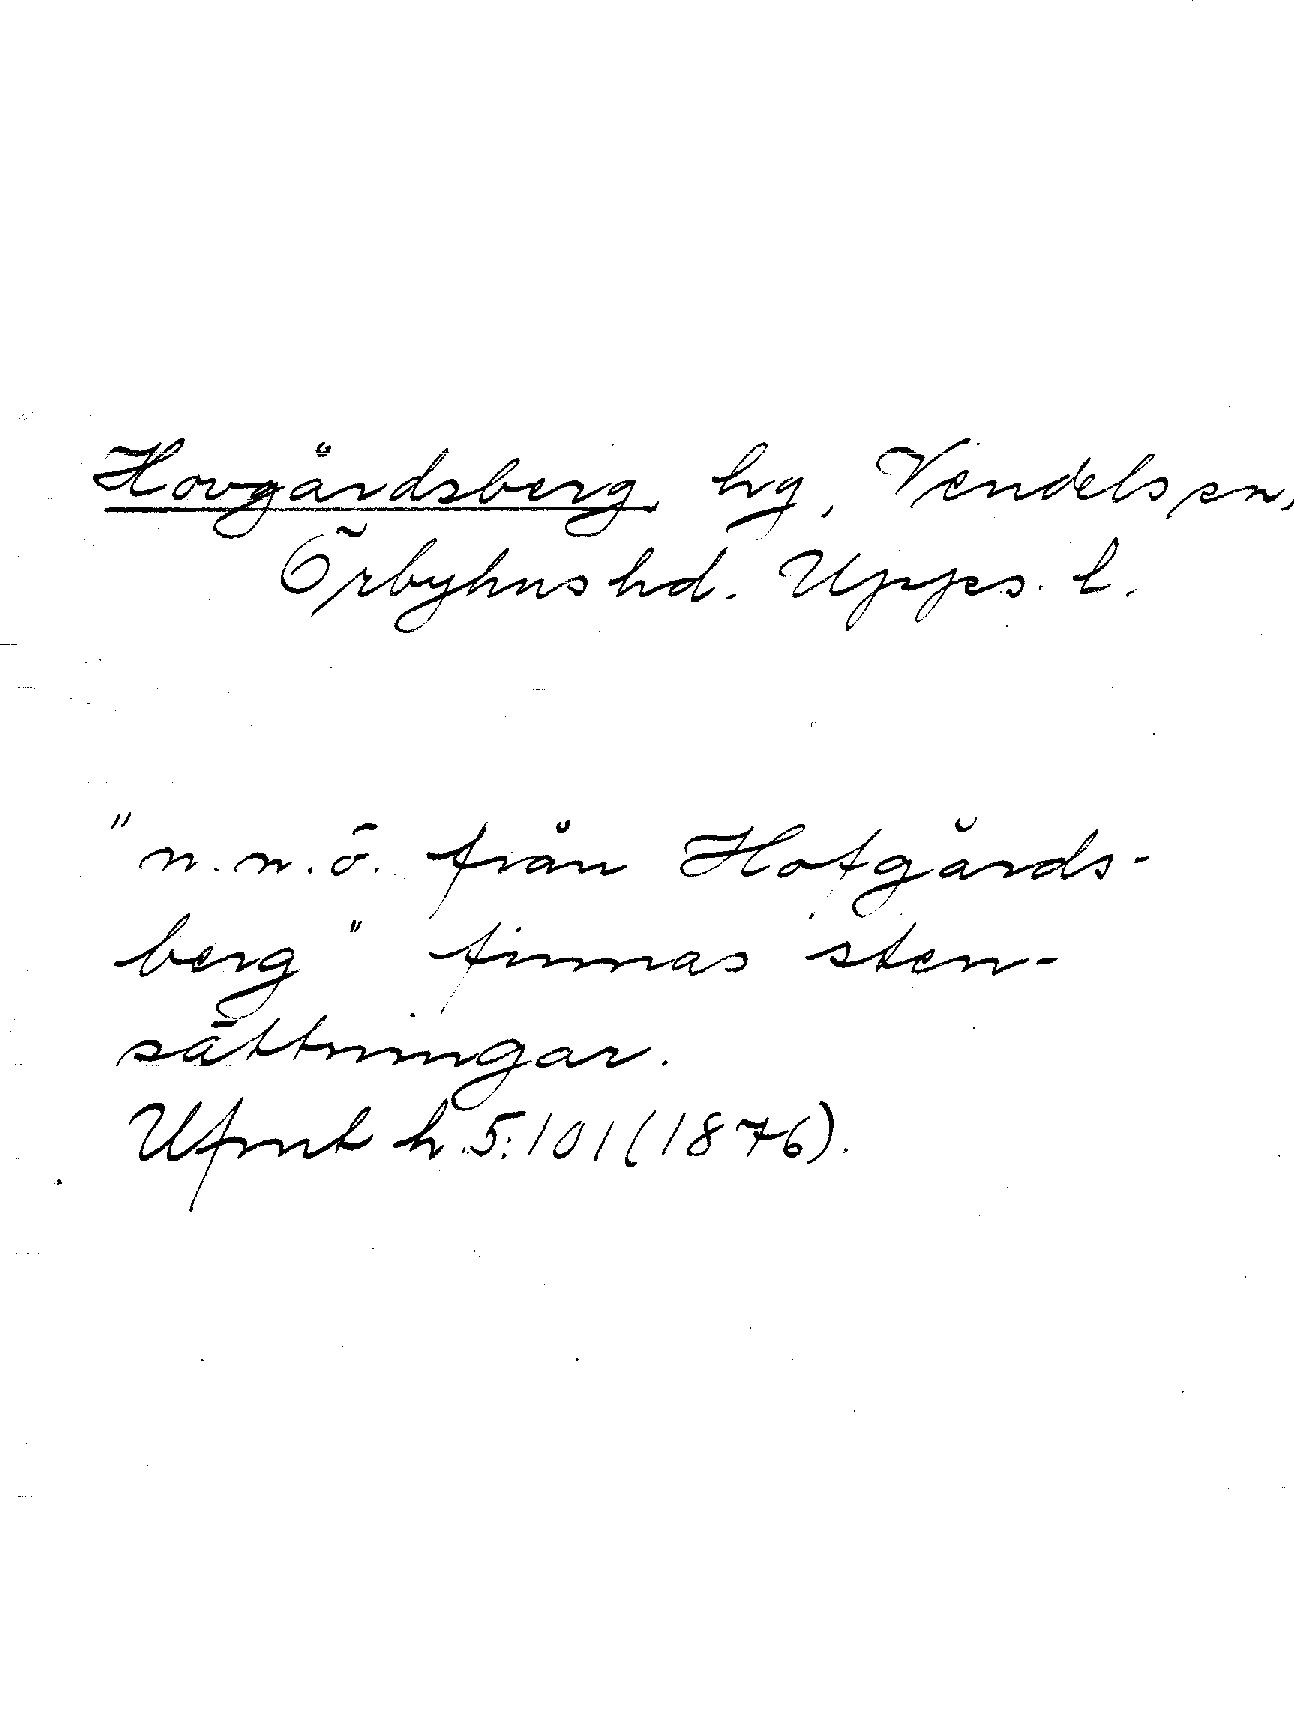 Hovgårdsberg, hg, Vendels sn,
Örbyhus hd. Upps. l.
"n.n.ö. från Hofgårds-
berg" finnas sten-
sättningar.
Ufmt h.5:101(1876).